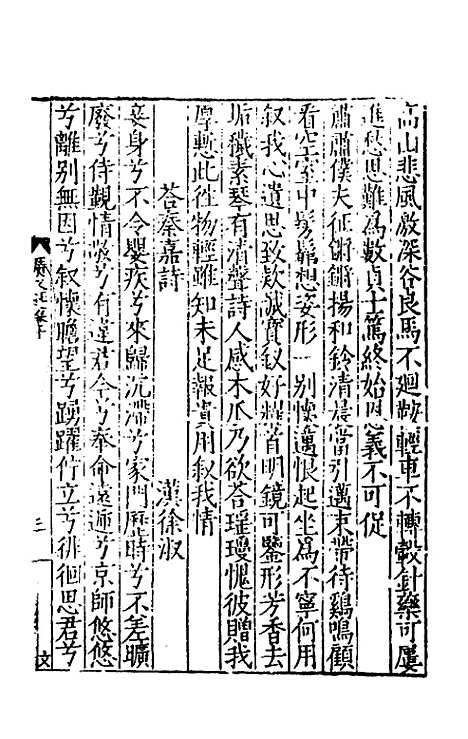 高山悲風激深谷良馬不廻鞍輕車不轉轂針藥可屢
進愁思難為數貞士篤終始恩義不可促
肅肅僕夫征鏘鏘揚和鈴清晨當引邁束帶待鷄鳴顧
看空室中髣髴想姿形一別懷萬恨起坐為不寧何用
叙我心遺思致欵誠寳釵好耀首明鏡可鑒形芳香去
垢穢素琴有清聲詩人感木瓜乃欲荅瑶瓊愧彼贈我
厚慙此往物輕雖知未足報貴用叙我情
荅秦嘉詩 漢徐淑
妾身兮不令嬰疾兮來歸沉滯兮家門厯時兮不差曠
廢兮侍覲情敬兮有違君今兮奉命遠適兮京師悠悠
兮離别無因兮叙懷瞻望兮踴躍佇立兮徘徊思君兮
廣文選卷十
三
文